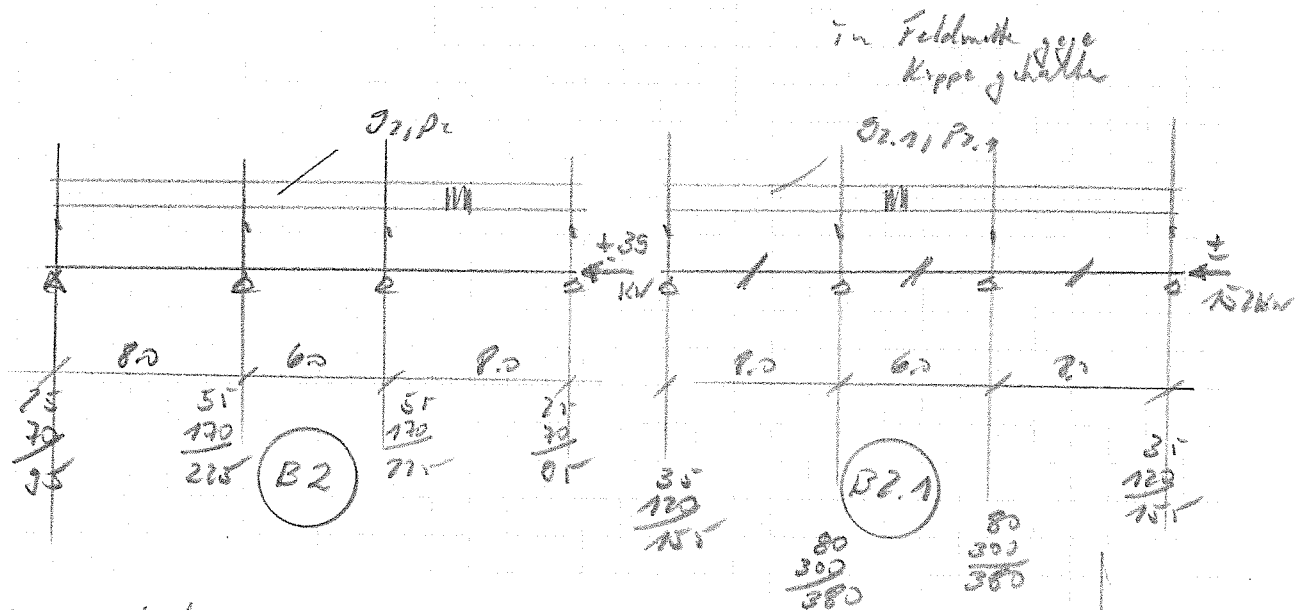 in Feldmitte gege
Kippe gehalten
g2, p2
g2.1, p2.1
± 35
KN
±
152KN
8.0
6.0
8.0
8.0
6.0
8.0
25
70
95
55
170
225
B2
55
170
225
25
70
95
35
120
155
80
300
380
B2.1
80
300
380
35
120
155